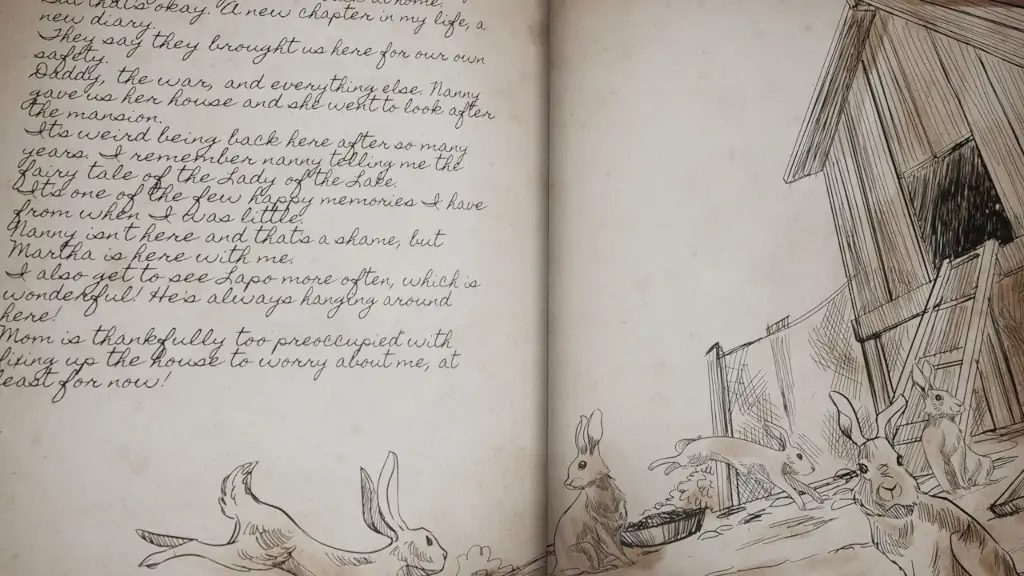 but that's okay. A new chapter in my life, a
new diary.
They say they brought us here for our own
safety.
Daddy, the war, and everything else. Nanny
gave us her house and she went to look after
the mansion.
It's weird being back here after so many
years, I remember nanny telling me the
fairy tale of the Lady of the Lake.
It's one of the few happy memories I have
from when I was little.
Nanny isn't here and that's a shame, but
Martha is here with me.
I also get to see Lapo more often, which is
wonderful! He's always hanging around
here!
Mom is thankfully too preoccupied with
fixing up the house to worry about me, at
least for now!